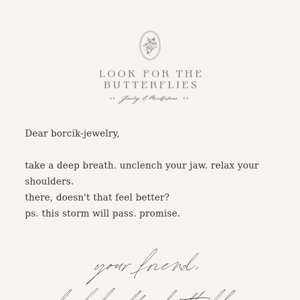 LOOK FOR THE
BUTTERFLIES
Dear borcik-jewelry,
take a deep breath. unclench your jaw. relax your
shoulders.
there, doesn't that feel better?
ps. this storm will pass. promise.
your friend,